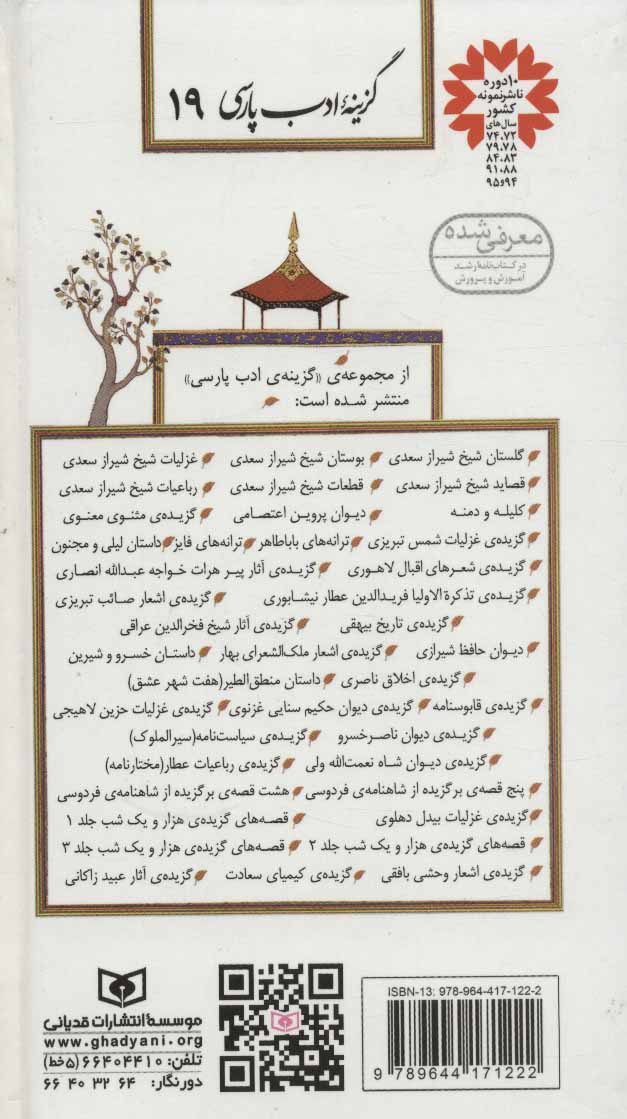 گزینهٔ ادب پارسی ۱۹
۱۰ دوره
ناشر نمونه
کشور
سال‌های
۷۴،۷۲
۷۹،۷۸
۸۴،۸۳
۹۱،۸۸
۹۴و۹۵
معرفی شده
در کتاب‌نامه ارشد
آموزش و پرورش
از مجموعه‌ی «گزینه‌ی ادب پارسی»
منتشر شده است:
گلستان شیخ شیراز سعدی بوستان شیخ شیراز سعدی غزلیات شیخ شیراز سعدی
قصاید شیخ شیراز سعدی قطعات شیخ شیراز سعدی رباعیات شیخ شیراز سعدی
کلیله و دمنه دیوان پروین اعتصامی گزیده‌ی مثنوی معنوی
گزیده‌ی غزلیات شمس تبریزی ترانه‌های باباطاهر ترانه‌های فایز داستان لیلی و مجنون
گزیده‌ی شعرهای اقبال لاهوری گزیده‌ی آثار پیر هرات خواجه عبدالله انصاری
گزیده‌ی تذکرة الاولیا فریدالدین عطار نیشابوری گزیده‌ی اشعار صائب تبریزی
گزیده‌ی تاریخ بیهقی گزیده‌ی آثار شیخ فخرالدین عراقی
دیوان حافظ شیرازی گزیده‌ی اشعار ملک‌الشعرای بهار داستان خسرو و شیرین
گزیده‌ی اخلاق ناصری داستان منطق‌الطیر(هفت شهر عشق)
گزیده‌ی قابوسنامه گزیده‌ی دیوان حکیم سنایی غزنوی گزیده‌ی غزلیات حزین لاهیجی
گزیده‌ی دیوان ناصرخسرو گزیده‌ی سیاست‌نامه(سیرالملوک)
گزیده‌ی دیوان شاه نعمت‌الله ولی گزیده‌ی رباعیات عطار(مختارنامه)
پنج قصه‌ی برگزیده از شاهنامه‌ی فردوسی هشت قصه‌ی برگزیده از شاهنامه‌ی فردوسی
گزیده‌ی غزلیات بیدل دهلوی قصه‌های گزیده‌ی هزار و یک شب جلد ۱
قصه‌های گزیده‌ی هزار و یک شب جلد ۲ قصه‌های گزیده‌ی هزار و یک شب جلد ۳
گزیده‌ی اشعار وحشی بافقی گزیده‌ی کیمیای سعادت گزیده‌ی آثار عبید زاکانی
موسسهٔ انتشارات قدیانی
www.ghadyani.org
تلفن: ۶۶۴۰۴۴۱۰ (۵خط)
دورنگار: ۶۶ ۴۰ ۳۲ ۶۴
ISBN-13: 978-964-417-122-2
9 789644 171222